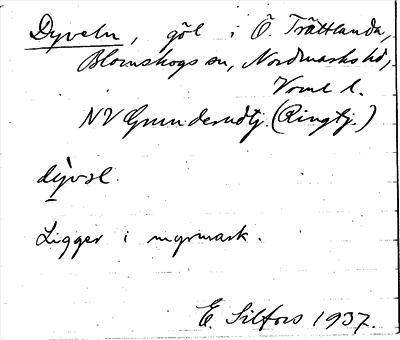 Dyveln, göl i Ö. Trättlanda,
Blomskogs sn, Nordmarks hd,
Vrml l.
NV Grundersudtj (Ringtj.)
dỳvəl
Ligger i myrmark.
E. Silfors 1937.